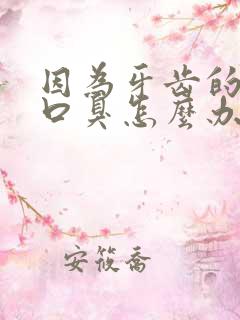 因為牙齒的
口臭怎麼办
安筱喬